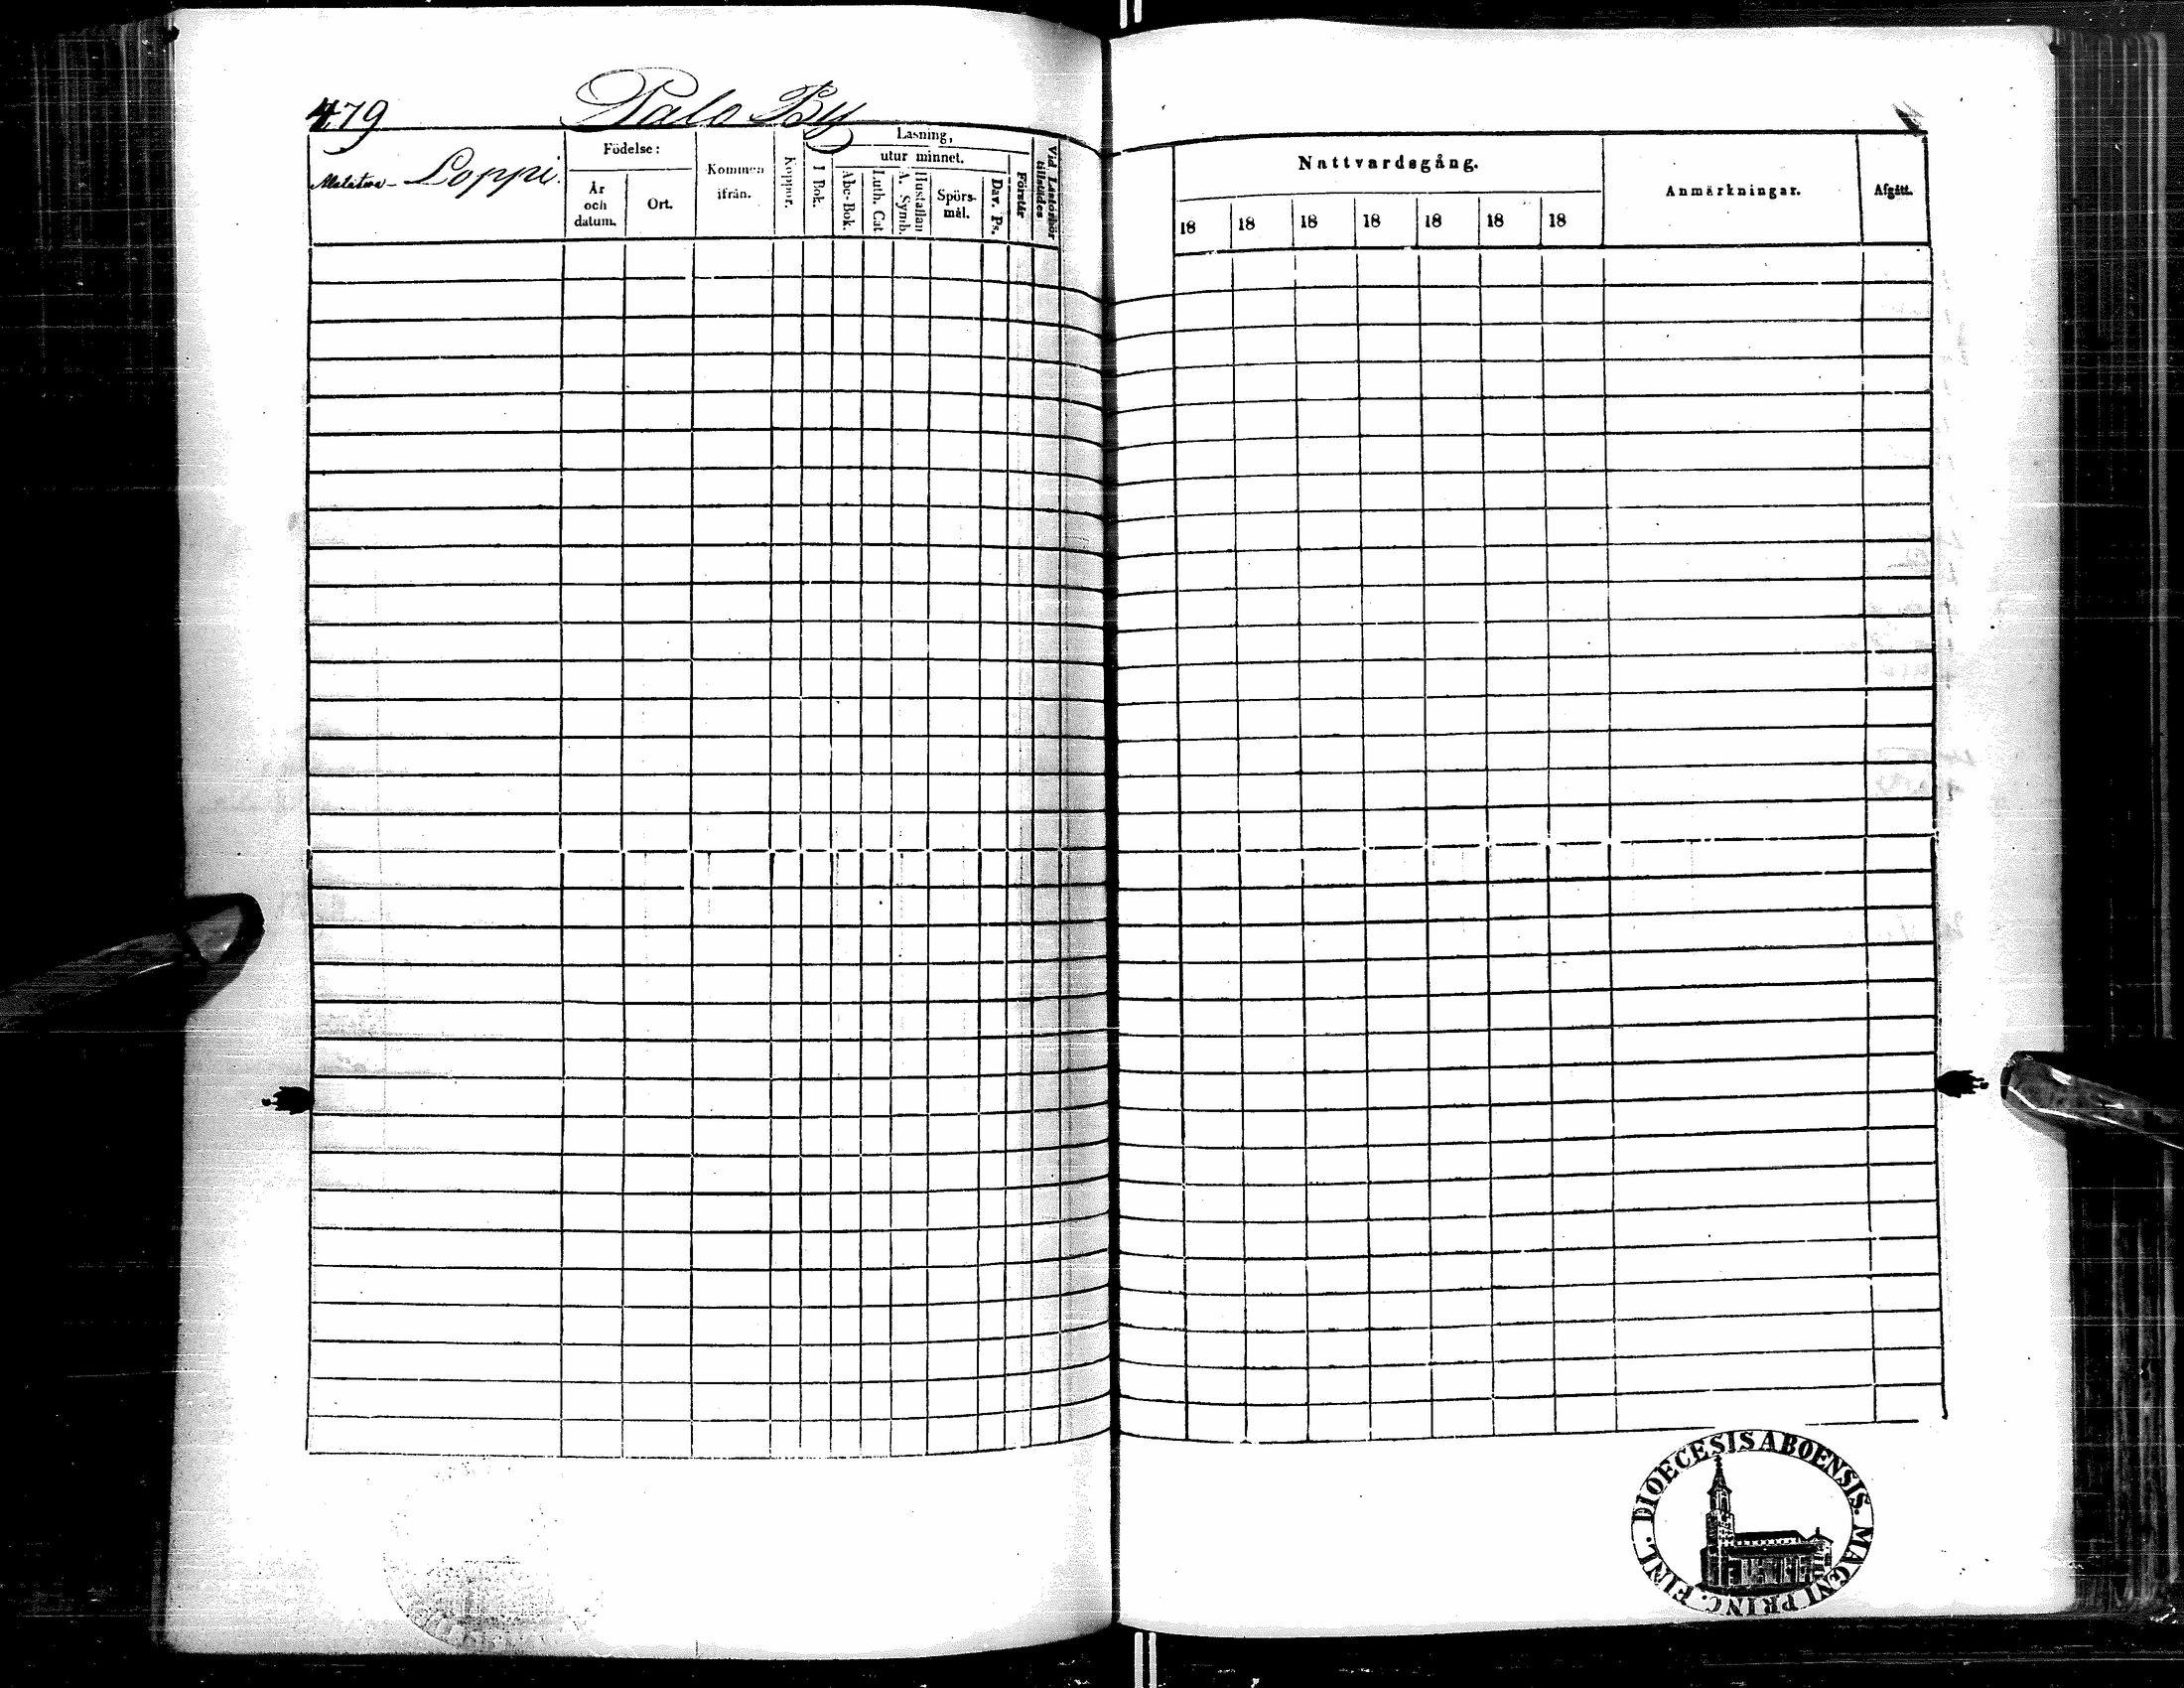 479 Palo By
Loppi.
Födelse:
År och datum.
Ort.
Kommen ifrån.
Koppor.
Läsning,
I Bok.
utur minnet.
Abc-Bok.
Luth. Cat
A. Symb. Hustaflan
Spörs-mål.
Dav. Ps.
Förstår
Vid Läsförhör tillstädes
Nattvardsgång.
18 18 18 18 18 18 18
Anmärkningar.
Afgått.
DIOECESIS ABOENSIS. MAGNI PRINC. FINL.